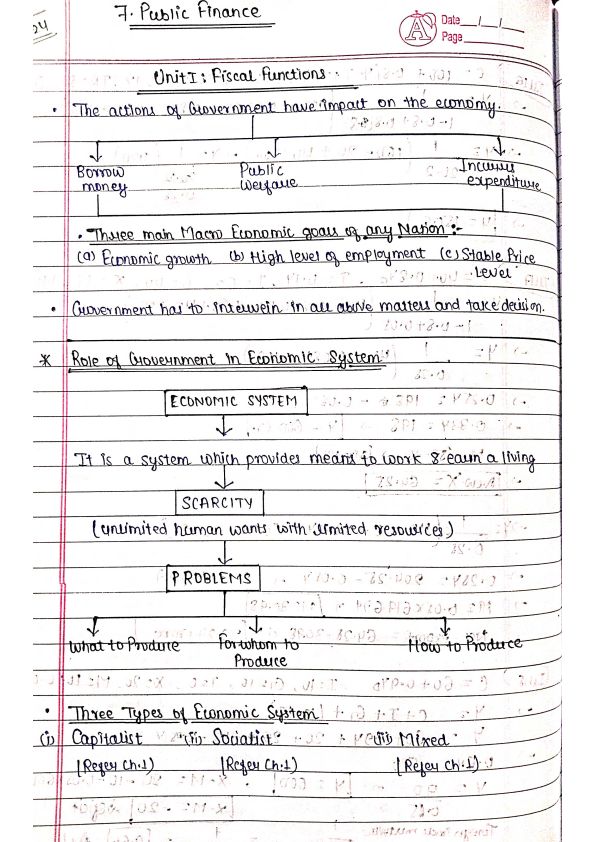 24
7. Public Finance
Date / /
Page
Unit I : Fiscal Functions
• The actions of Government have impact on the economy.
Borrow money
Public Welfare
Incurrs expenditure
• Three main Macro Economic goals of any Nation :-
(a) Economic growth (b) High level of employment (c) Stable Price Level
• Government has to intervein in all above matters and take decision.
* Role of Government in Economic System
ECONOMIC SYSTEM
It is a system which provides means to work & earn a living
SCARCITY
(unlimited human wants with limited resources)
PROBLEMS
What to Produce
For whom to Produce
How to Produce
• Three Types of Economic System
(i) Capitalist (ii) Socialist (iii) Mixed
[Refer Ch.1) [Refer Ch.1) [Refer Ch.1)